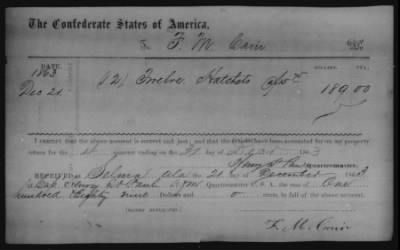 The Confederate States of America,
To F. M. Cain Dr.
DATE. DOLLARS. CTS.
1863
Dec 21 (12) Twelve Hatchets 189.00
I CERTIFY that the above account is correct and just; and that the articles have been accounted for on my property
return for the quarter ending on the 31 of 1863
Quartermaster.
RECEIVED at Selma Ala the 21 of December 1863
of Capt Henry St Paul Quartermaster C. S. A., the sum of One
hundred Eighty nine Dollars and 0 cents, in full of the above account.
[SIGNED DUPLICATES.]
F. M. Cain